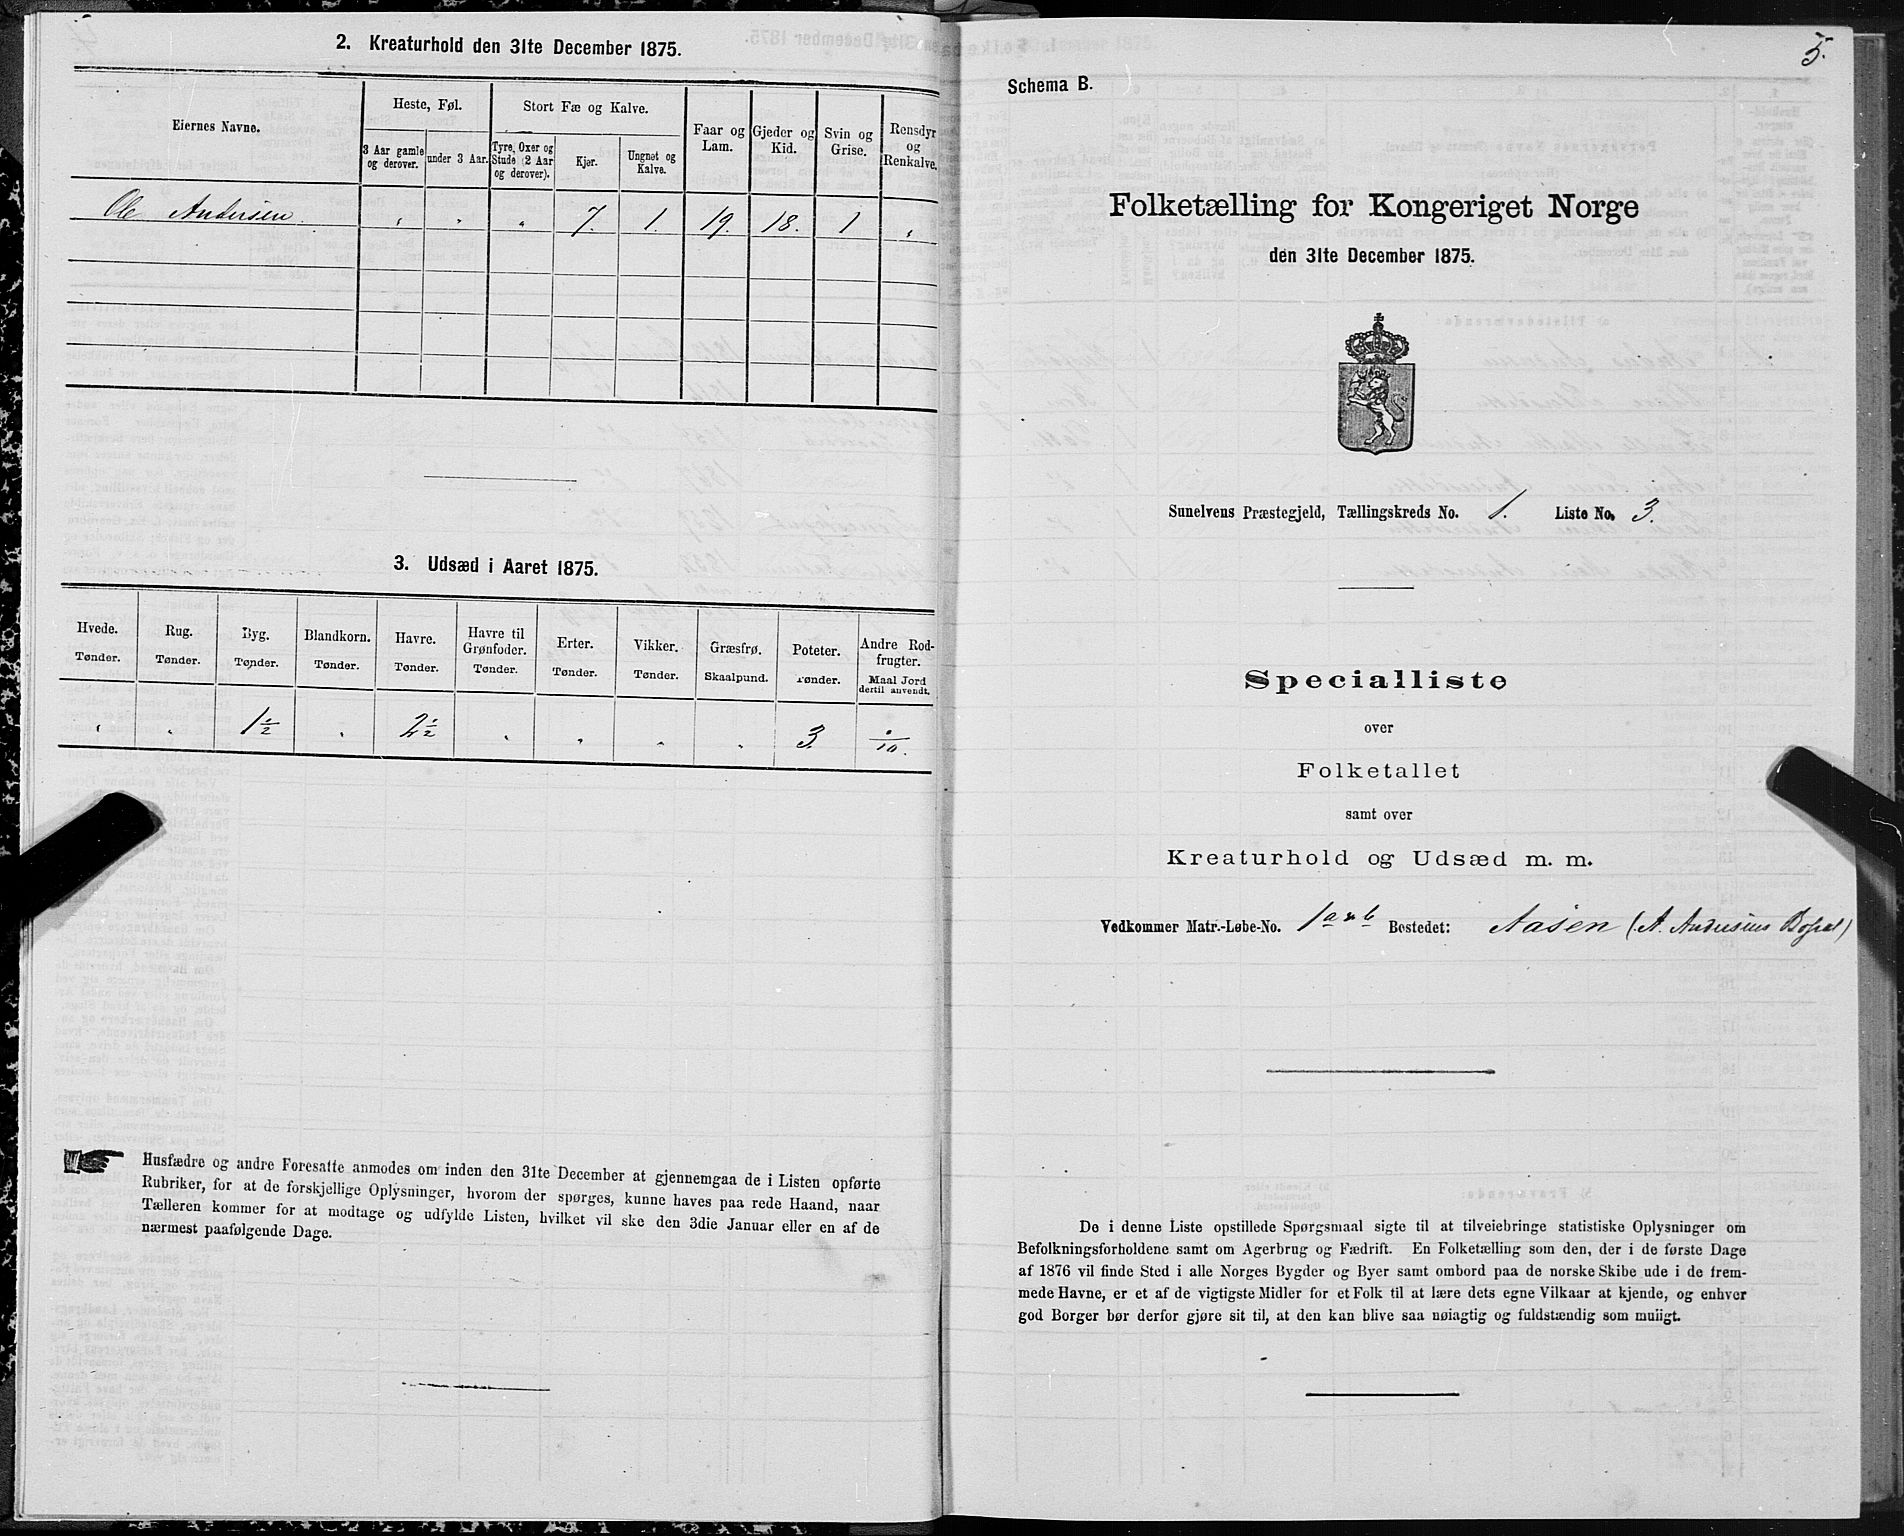 2. Kreaturhold den 31te December 1875.
Eiernes Navne.
Heste, Føl.
Stort Fæ og Kalve.
Faar og Lam.
Gjeder og Kid.
Svin og Grise.
Rensdyr og Renkalve.
3 Aar gamle og derover.
under 3 Aar.
Tyre, Oxer og Stude (2 Aar og derover).
Kjør.
Ungnøt og Kalve.
Ole Andersen. " " " 7. 1. 19. 18. 1 "
3. Udsæd i Aaret 1875.
Hvede. Rug. Byg. Blandkorn. Havre. Havre til Grønfoder. Erter. Vikker. Græsfrø. Poteter. Andre Rodfrugter.
Tønder. Tønder. Tønder. Tønder. Tønder. Tønder. Tønder. Tønder. Skaalpund. Tønder. Maal Jord dertil anvendt.
" " 1 ½ " 2 ½ " " " " 3. /10.
Husfædre og andre Foresatte anmodes om inden den 31te December at gjennemgaa de i Listen opførte
Rubriker, for at de forskjellige Oplysninger, hvorom der spørges, kunne haves paa rede Haand, naar
Tælleren kommer for at modtage og udfylde Listen, hvilket vil ske den 3die Januar eller en af de
nærmest paafølgende Dage.
5.
Schema B.
Folketælling for Kongeriget Norge
den 31te December 1875.
Sunelvens Præstegjeld, Tællingskreds No. 1. Liste No. 3.
Specialliste
over
Folketallet
samt over
Kreaturhold og Udsæd m. m.
Vedkommer Matr.-Løbe-No. 1 a & b Bostedet: Aasen (A. Andersens )
De i denne Liste opstillede Spørgsmaal sigte til at tilveiebringe statistiske Oplysninger om
Befolkningsforholdene samt om Agerbrug og Fædrift. En Folketælling som den, der i de første Dage
af 1876 vil finde Sted i alle Norges Bygder og Byer samt ombord paa de norske Skibe ude i de frem-
mede Havne, er et af de vigtigste Midler for et Folk til at lære dets egne Vilkaar at kjende, og enhver
god Borger bør derfor gjøre sit til, at den kan blive saa nøiagtig og fuldstændig som muligt.